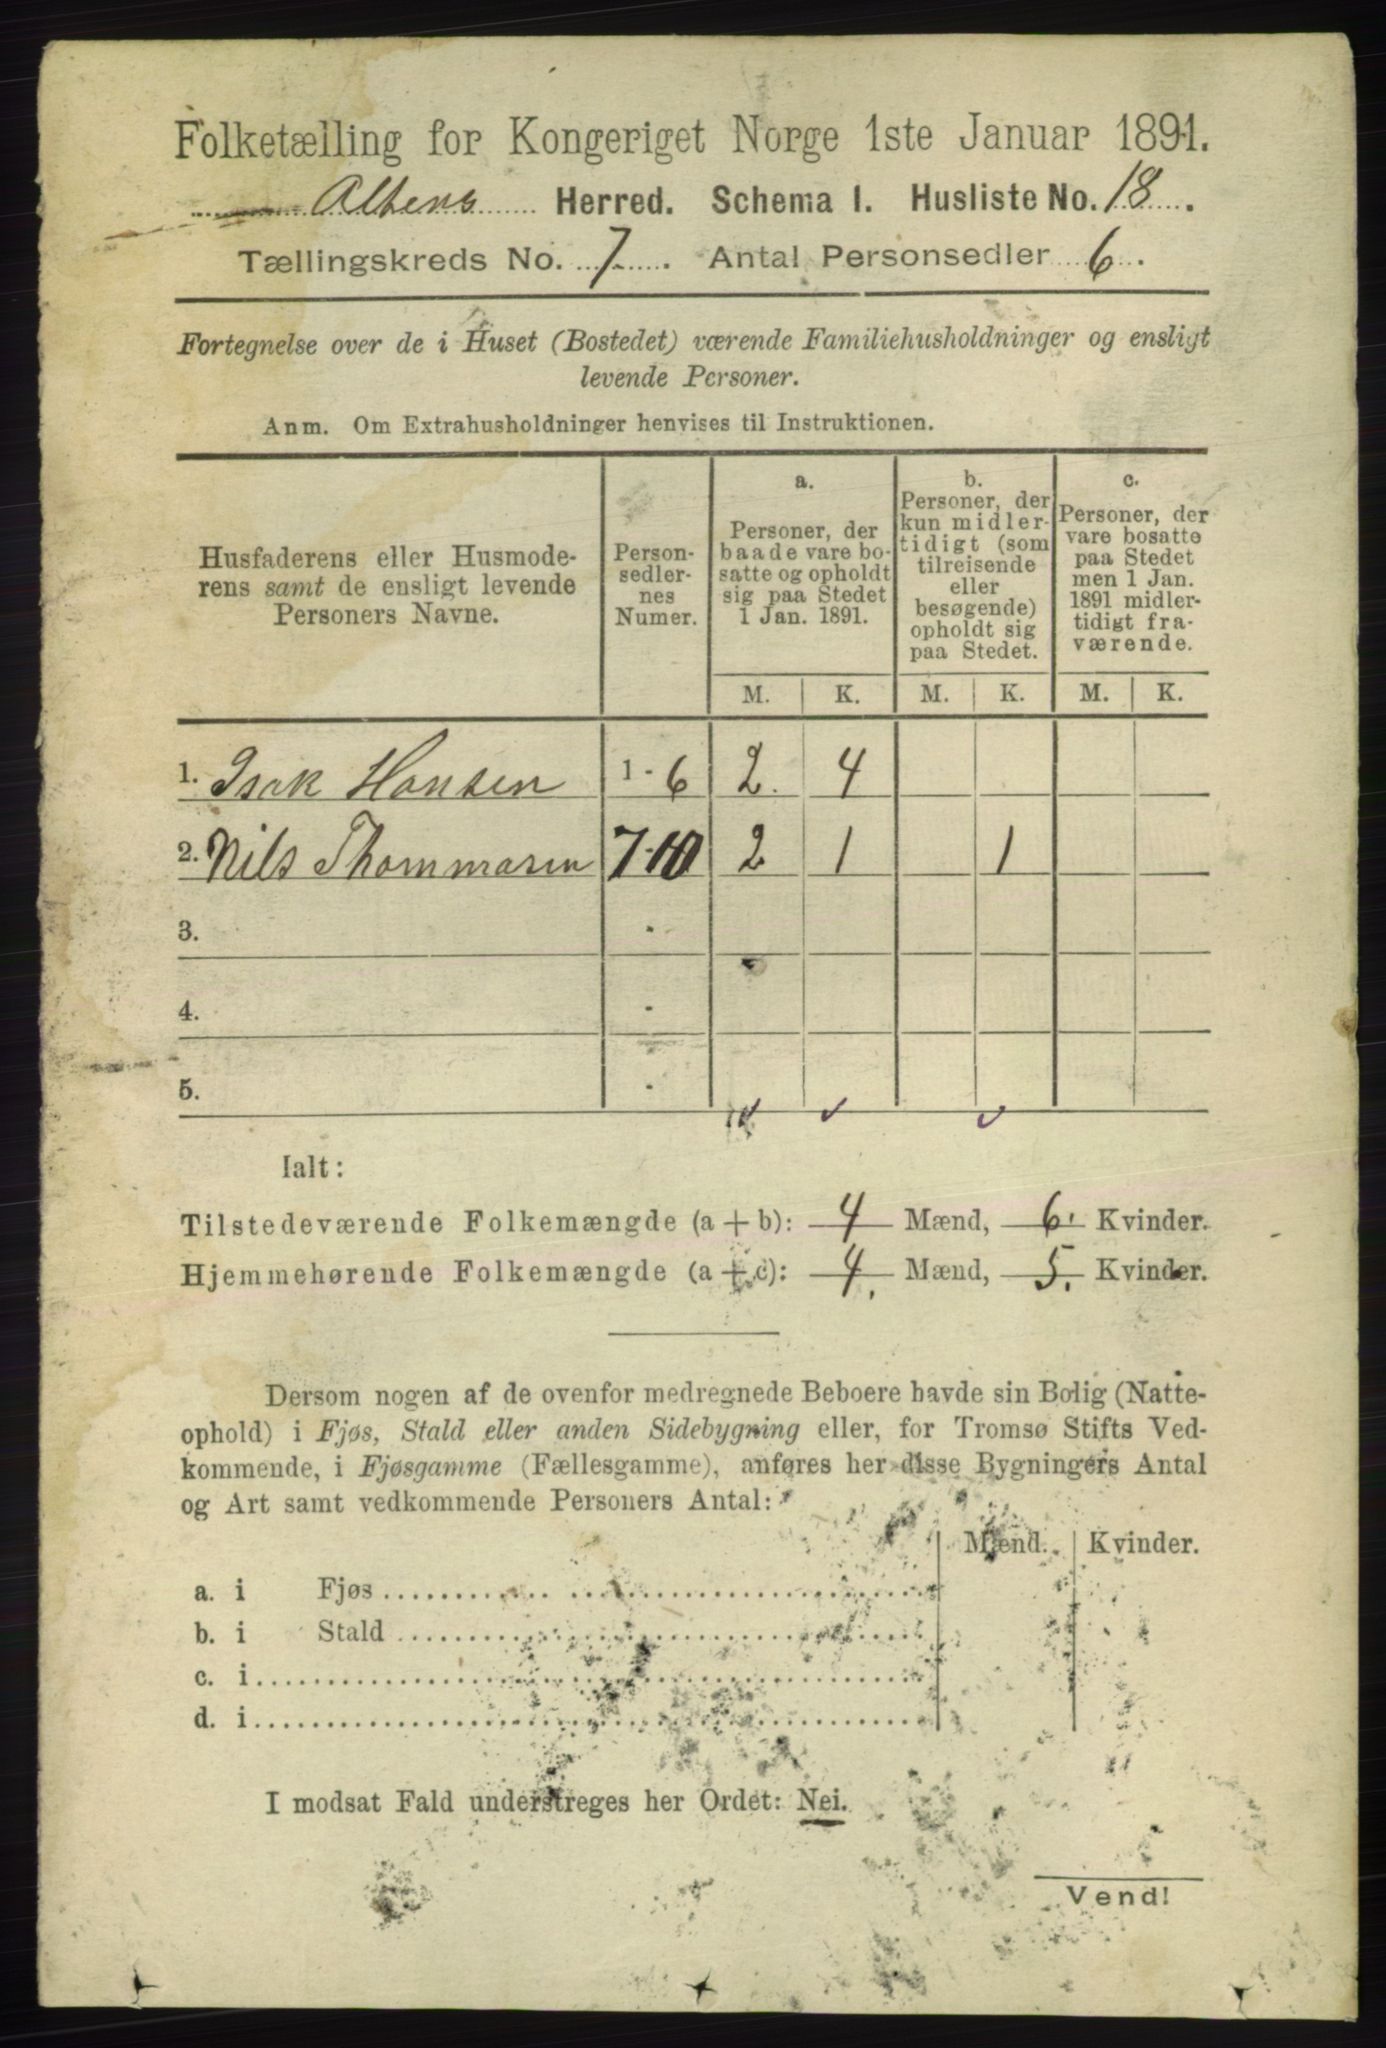 Folketælling for Kongeriget Norge 1ste Januar 1891.
Altens Herred. Schema I. Husliste No. 18.
Tællingskreds No. 7. Antal Personsedler 6.
Fortegnelse over de i Huset (Bostedet) værende Familiehusholdninger og ensligt
levende Personer.
Anm. Om Extrahusholdninger henvises til Instruktionen.
Husfaderens eller Husmode-
rens samt de ensligt levende
Personers Navne.
Person-
sedler-
nes
Numer.
a.
Personer, der
baade vare bo-
satte og opholdt
sig paa Stedet
1 Jan. 1891.
b.
Personer, der
kun midler-
tidigt (som
tilreisende
eller
besøgende)
opholdt sig
paa Stedet.
c.
Personer, der
vare bosatte
paa Stedet
men 1 Jan.
1891 midler-
tidigt fra-
værende.
M. K. M. K. M. K.
1. Isak Hansen 1-6 2. 4
2. Nils Thommasen 7-10 2 1 1
3. -
4. -
5. -
Ialt:
Tilstedeværende Folkemængde (a+b): 4 Mænd, 6. Kvinder.
Hjemmehørende Folkemængde (a+c): 4. Mænd, 5. Kvinder.
Dersom nogen af de ovenfor medregnede Beboere havde sin Bolig (Natte-
ophold) i Fjøs, Stald eller anden Sidebygning eller, for Tromsø Stifts Ved-
kommende, i Fjøsgamme (Fællesgamme), anføres her disse Bygningers Antal
og Art samt vedkommende Personers Antal:
Mænd. Kvinder.
a. i Fjøs
b. i Stald
c. i
d. i
I modsat Fald understreges her Ordet: Nei.
Vend!